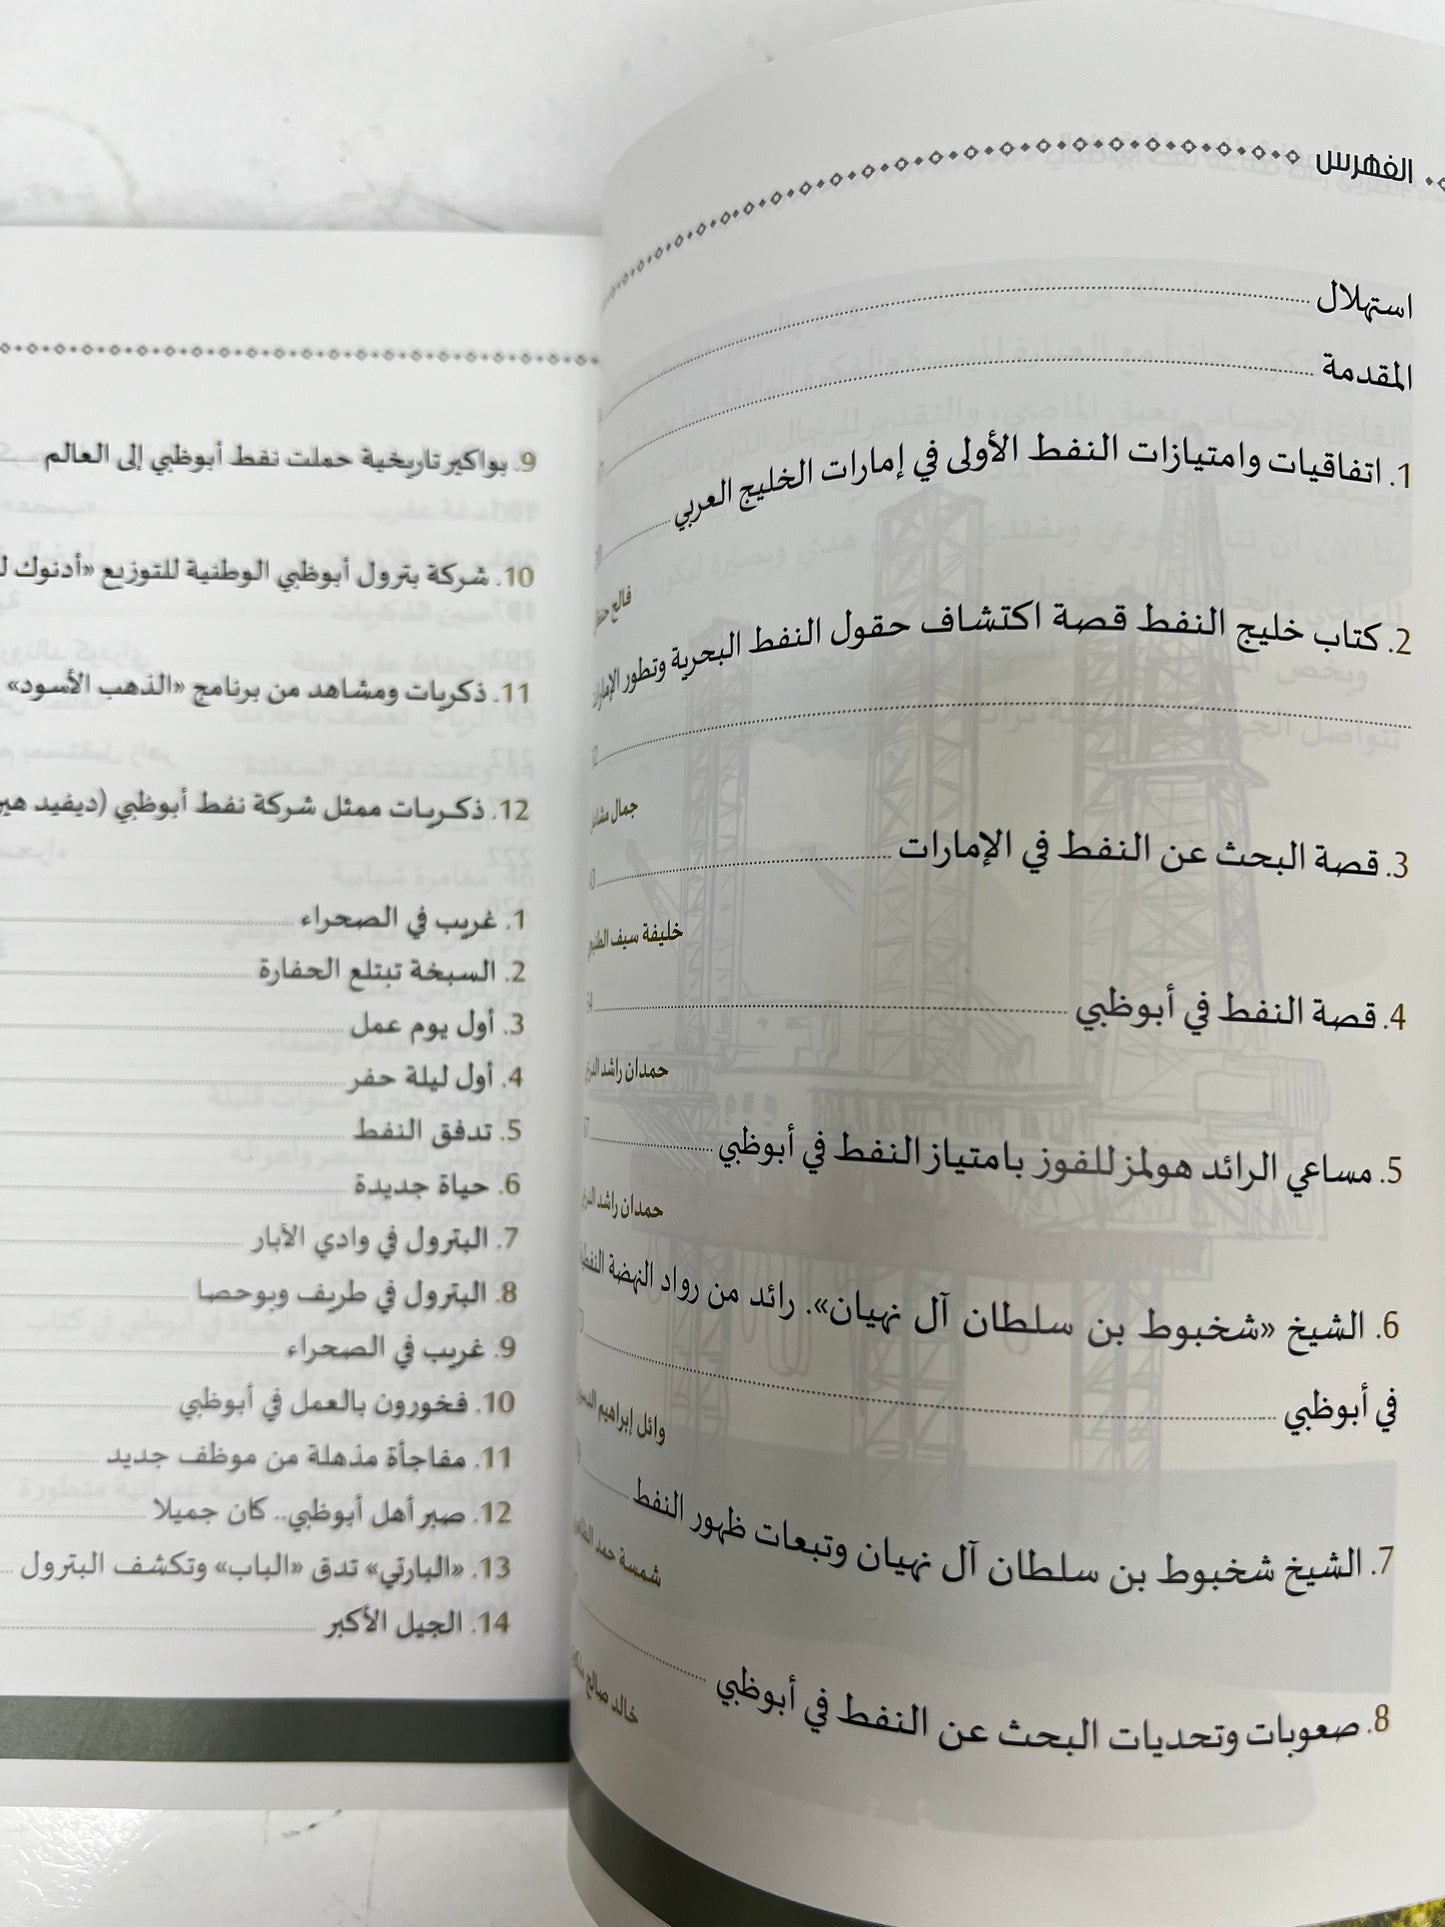 الفهرس
استهلال
المقدمة
1. اتفاقيات وامتيازات النفط الأولى في إمارات الخليج العربي
فالح
2. كتاب خليج النفط قصة اكتشاف حقول النفط البحرية وتطور الإمارات
جمال
3. قصة البحث عن النفط في الإمارات
خليفة سيف
4. قصة النفط في أبوظبي
حمدان راشد
5. مساعي الرائد هولمز للفوز بامتياز النفط في أبوظبي
حمدان راشد
6. الشيخ «شخبوط بن سلطان آل نهيان». رائد من رواد النهضة النفطية
في أبوظبي
وائل إبراهيم
7. الشيخ شخبوط بن سلطان آل نهيان وتبعات ظهور النفط
شمسة حمد
8. صعوبات وتحديات البحث عن النفط في أبوظبي
خالد صالح
9. بواكير تاريخية حملت نفط أبوظبي إلى العالم
10. شركة بترول أبوظبي الوطنية للتوزيع «أدنوك
11. ذكريات ومشاهد من برنامج «الذهب الأسود»
12. ذكريات ممثل شركة نفط أبوظبي (ديفيد
1. غريب في الصحراء
2. السبخة تبتلع الحفارة
3. أول يوم عمل
4. أول ليلة حفر
5. تدفق النفط
6. حياة جديدة
7. البترول في وادي الآبار
8. البترول في طريف وبوحصا
9. غريب في الصحراء
10. فخورون بالعمل في أبوظبي
11. مفاجأة مذهلة من موظف جديد
12. صبر أهل أبوظبي.. كان جميلا
13. «البارتي» تدق «الباب» وتكشف البترول
14. الجيل الأكبر